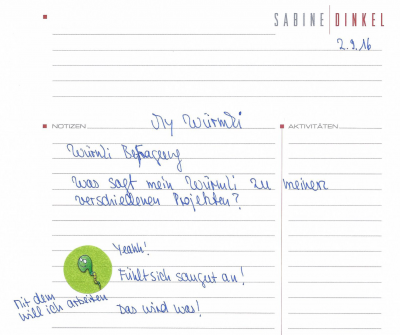 SABINE DINKEL
2.9.16
NOTIZEN
My Würmli
AKTIVITÄTEN
Würmli Befragung
Was sagt mein Würmli zu meinen
verschiedenen Projekten?
Yeahh!
Fühlt sich saugut an!
Mit dem
will ich arbeiten
Das wird was!